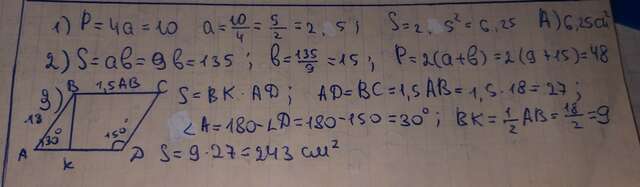 1) P = 4a = 10 a = 10/4 = 5/2 = 2,5 ; S = 2,5² = 6,25 A) 6,25 см²
2) S = ab = 9b = 135 ; b = 135/9 = 15 ; P = 2(a+b) = 2(9+15) = 48
3) B 1,5AB C S = BK · AD ; AD = BC = 1,5AB = 1,5 · 18 = 27 ;
18 30° 150° ∠A = 180 - ∠D = 180 - 150 = 30° ; BK = 1/2 AB = 18/2 = 9
A K D S = 9 · 27 = 243 см²